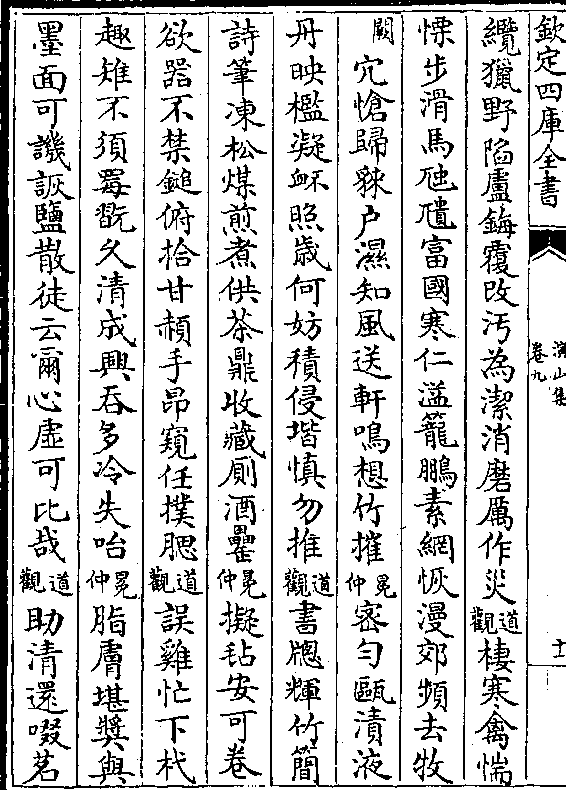 欽定四庫全書
演山集
卷九
十一
纜獵野陷盧鋂覆改汚為潔消磨厲作災觀道棲寒禽惴
慄步滑馬虺隤富國寒仁溢籠鵬素網恢漫郊頻去牧
闕穴愴歸𧳟户濕知風送軒鳴想竹摧仲冕密勻甌漬液
丹映檻凝衃照歳何妨積侵堦慎勿推觀道書牕輝竹簡
詩筆凍松煤煎煮供茶鼎收藏厠酒罍仲冕擬毡安可卷
欲器不禁鎚俯拾甘頳手昻窺任撲腮觀道誤雞忙下杙
趣雉不須罿翫久清成興吞多冷失咍仲冕脂膚堪奬與
墨面可譏詼鹽散徒云爾心虛可比哉觀道助清還啜茗